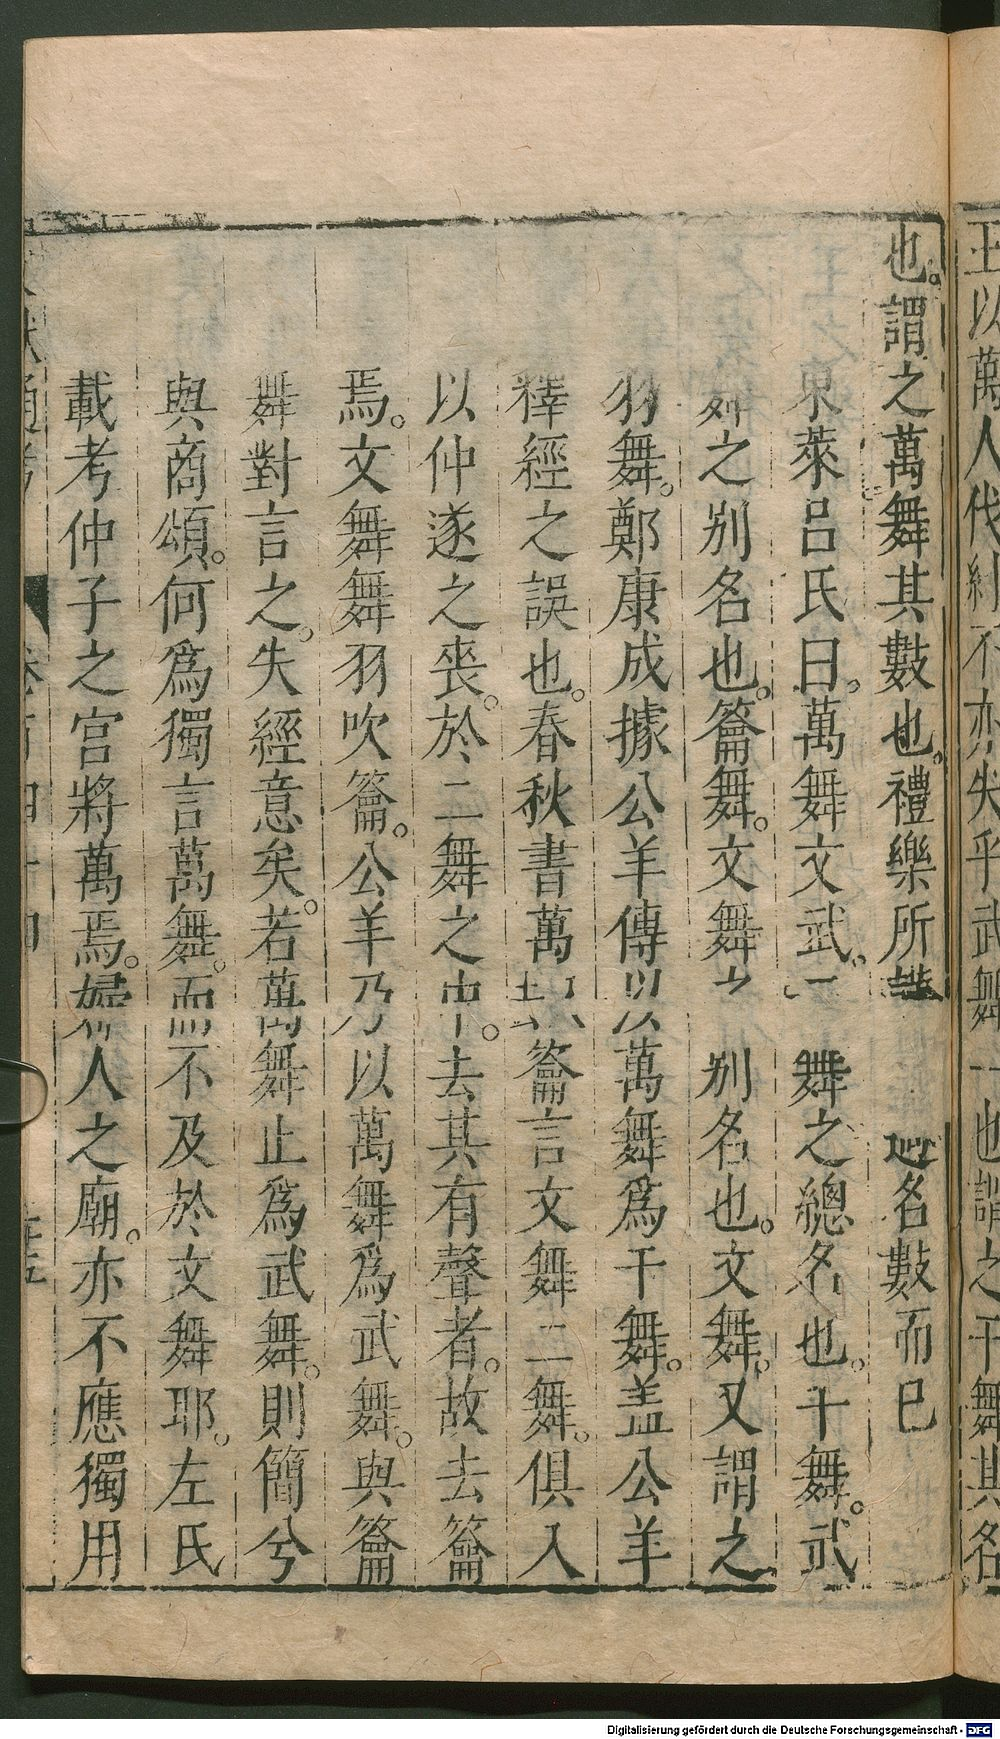 王以萬人代紂不亦失乎武舞一也謂之干舞其名
也。謂之萬舞其數也。禮樂所 名數而已
東萊呂氏曰。萬舞文武。二舞之總名也。干舞。武
舞之別名也。籥舞。文舞之別名也。文舞。又謂之
羽舞。鄭康成據公羊傳以萬舞爲干舞。盖公羊
釋經之誤也。春秋書萬 言文舞二舞。俱入
以仲遂之喪。於二舞之中。去其有聲者。故去籥
焉。文舞舞羽吹籥。公羊乃以萬舞爲武舞。與籥
舞對言之。失經意矣。若萬舞止爲武舞。則簡兮
與商頌。何爲獨言萬舞。而不及於文舞耶。左氏
載考仲子之宮將萬焉。婦人之廟。亦不應獨用
文獻通考 卷百四十四
Digitalisierung gefördert durch die Deutsche Forschungsgemeinschaft - DFG